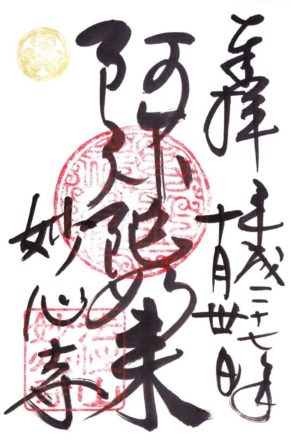 奉拝
平成二十七年
十月卅日
阿弥陀如来
妙心寺